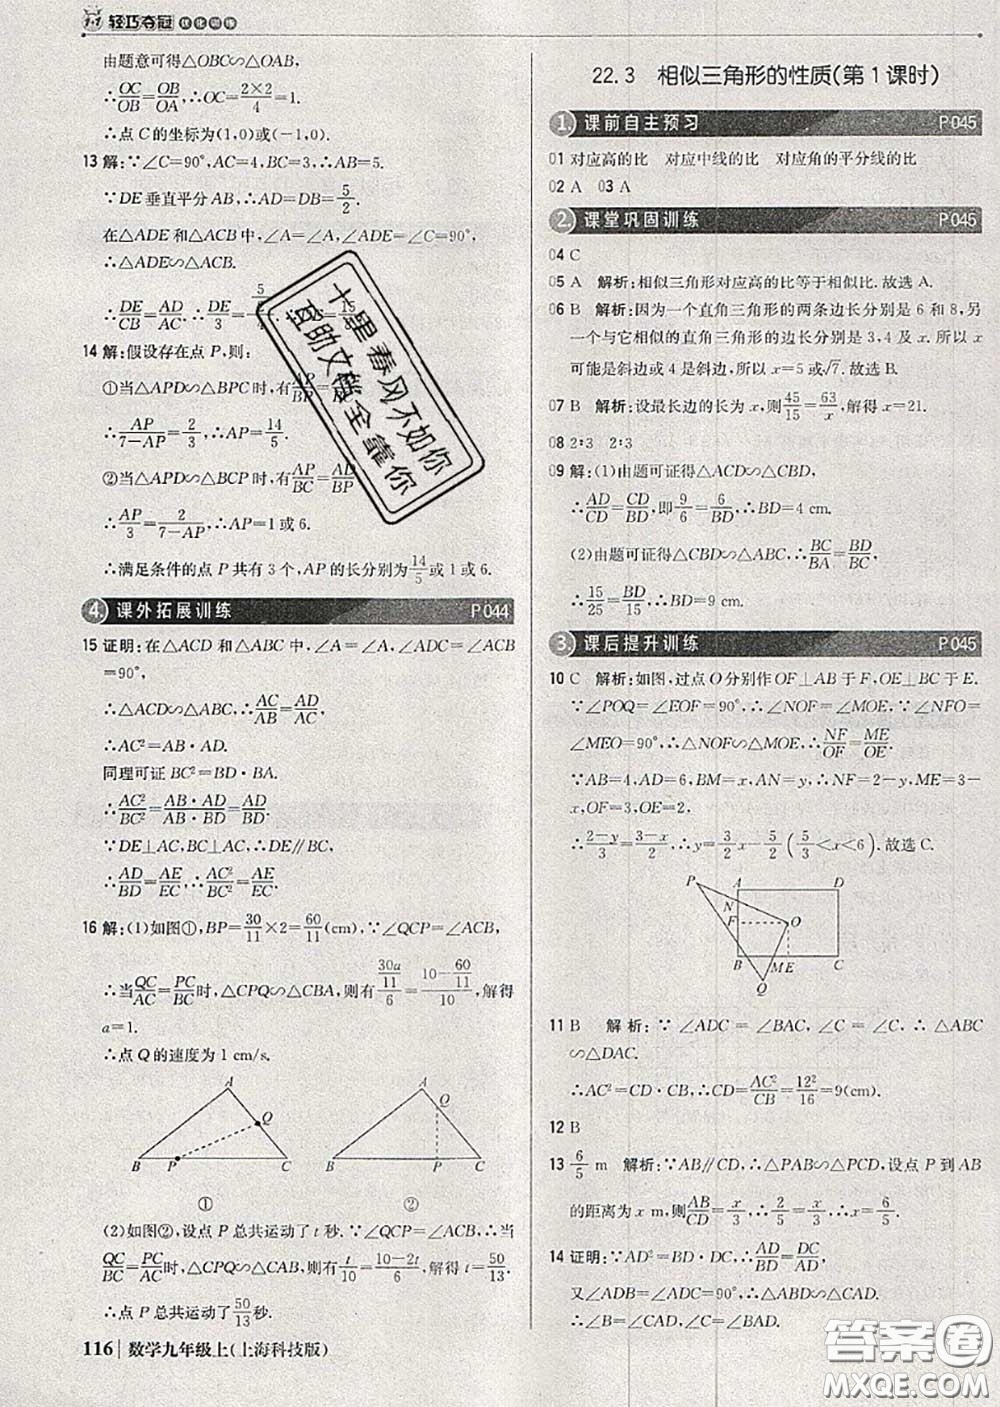 轻巧夺冠 优化训练
由题意可得△OBC∽△OAB,
∴OC/OB=OB/OA,∴OC=(2×2)/4=1.
∴点 C 的坐标为(1,0)或(−1,0).
13 解:∵∠C=90°,AC=4,BC=3,∴AB=5.
∵DE 垂直平分 AB,∴AD=DB=5/2.
在△ADE 和△ACB 中,∠A=∠A,∠ADE=∠C=90°,
∴△ADE∽△ACB.
∴DE/CB=AD/AC.∴DE/3=
14 解:假设存在点 P,则:
①当△APD∽△BPC 时,有AP/BP=
∴AP/(7−AP)=2/3,∴AP=14/5.
②当△APD∽△BCP 时,有AP/BC=AD/BP
∴AP/3=2/(7−AP),∴AP=1 或 6.
∴满足条件的点 P 共有 3 个,AP 的长分别为14/5或 1 或 6.
4. 课外拓展训练 P044
15 证明:在△ACD 和△ABC 中,∠A=∠A,∠ADC=∠ACB
=90°,
∴△ACD∽△ABC,∴AC/AB=AD/AC
∴AC²=AB·AD.
同理可证 BC²=BD·BA.
∴AC²/BC²=(AB·AD)/(AB·BD)=AD/BD.
∵DE⊥AC,BC⊥AC,∴DE∥BC.
∴AD/BD=AE/EC,∴AC²/BC²=AE/EC.
16 解:(1)如图①,BP=30/11×2=60/11(cm),∵∠QCP=∠ACB,
∴当QC/AC=PC/BC时,△CPQ∽△CBA,则有(30a/11)/6=(10−60/11)/10,解得
a=1.
∴点 Q 的速度为 1 cm/s.
A Q B P C
A Q B P C
① ②
(2)如图②,设点 P 总共运动了 t 秒.∵∠QCP=∠ACB,∴当
QC/BC=PC/AC时,△CPQ∽△CAB,则有t/10=(10−2t)/6,解得 t=50/13.
∴点 P 总共运动了50/13秒.
116 数学九年级上(上海科技版)
22.3 相似三角形的性质(第 1 课时)
1. 课前自主预习 P045
01 对应高的比 对应中线的比 对应角的平分线的比
02 A 03 A
2. 课堂巩固训练 P045
04 C
05 A 解析:相似三角形对应高的比等于相似比.故选 A.
06 B 解析:因为一个直角三角形的两条边长分别是 6 和 8,另
一个与它相似的直角三角形的边长分别是 3,4 及 x,所以 x
可能是斜边或 4 是斜边,所以 x=5 或√7.故选 B.
07 B 解析:设最长边的长为 x,则45/15=63/x,解得 x=21.
08 2∶3 2∶3
09 解:(1)由题可证得△ACD∽△CBD,
∴AD/CD=CD/BD,即9/6=6/BD,∴BD=4 cm.
(2)由题可证得△CBD∽△ABC,∴BC/BA=BD/BC,
∴15/25=BD/15,∴BD=9 cm.
3. 课后提升训练 P045
10 C 解析:如图,过点 O 分别作 OF⊥AB 于 F,OE⊥BC 于 E.
∵∠POQ=∠EOF=90°,∴∠NOF=∠MOE,∵∠NFO=
∠MEO=90°,∴△NOF∽△MOE,∴NF/OF=ME/OE.
∵AB=4,AD=6,BM=x,AN=y,∴NF=2−y,ME=3−
x,OF=3,OE=2.
∴(2−y)/3=(3−x)/2,∴y=3/2x−5/2(5/3<x<3).故选 C.
P A D N F O B M E C Q
11 B 解析:∵∠ADC=∠BAC,∠C=∠C,∴△ABC
∽△DAC.
∴AC²=CD·CB,∴CD=AC²/CB=12²/16=9(cm).
12 B
13 6/5 m 解析:∵AB∥CD,∴△PAB∽△PCD,设点 P 到 AB
的距离为 x m,则AB/CD=x/3,∴2/5=x/3,∴x=6/5
14 证明:∵AD²=BD·DC,∴AD/BD=DC/AD,
又∠ADB=∠ADC=90°,∴△ADB∽△CDA.
∴∠B=∠DAC.
十里春风不如你
自助文档全靠你
答案圈
MXQE.COM